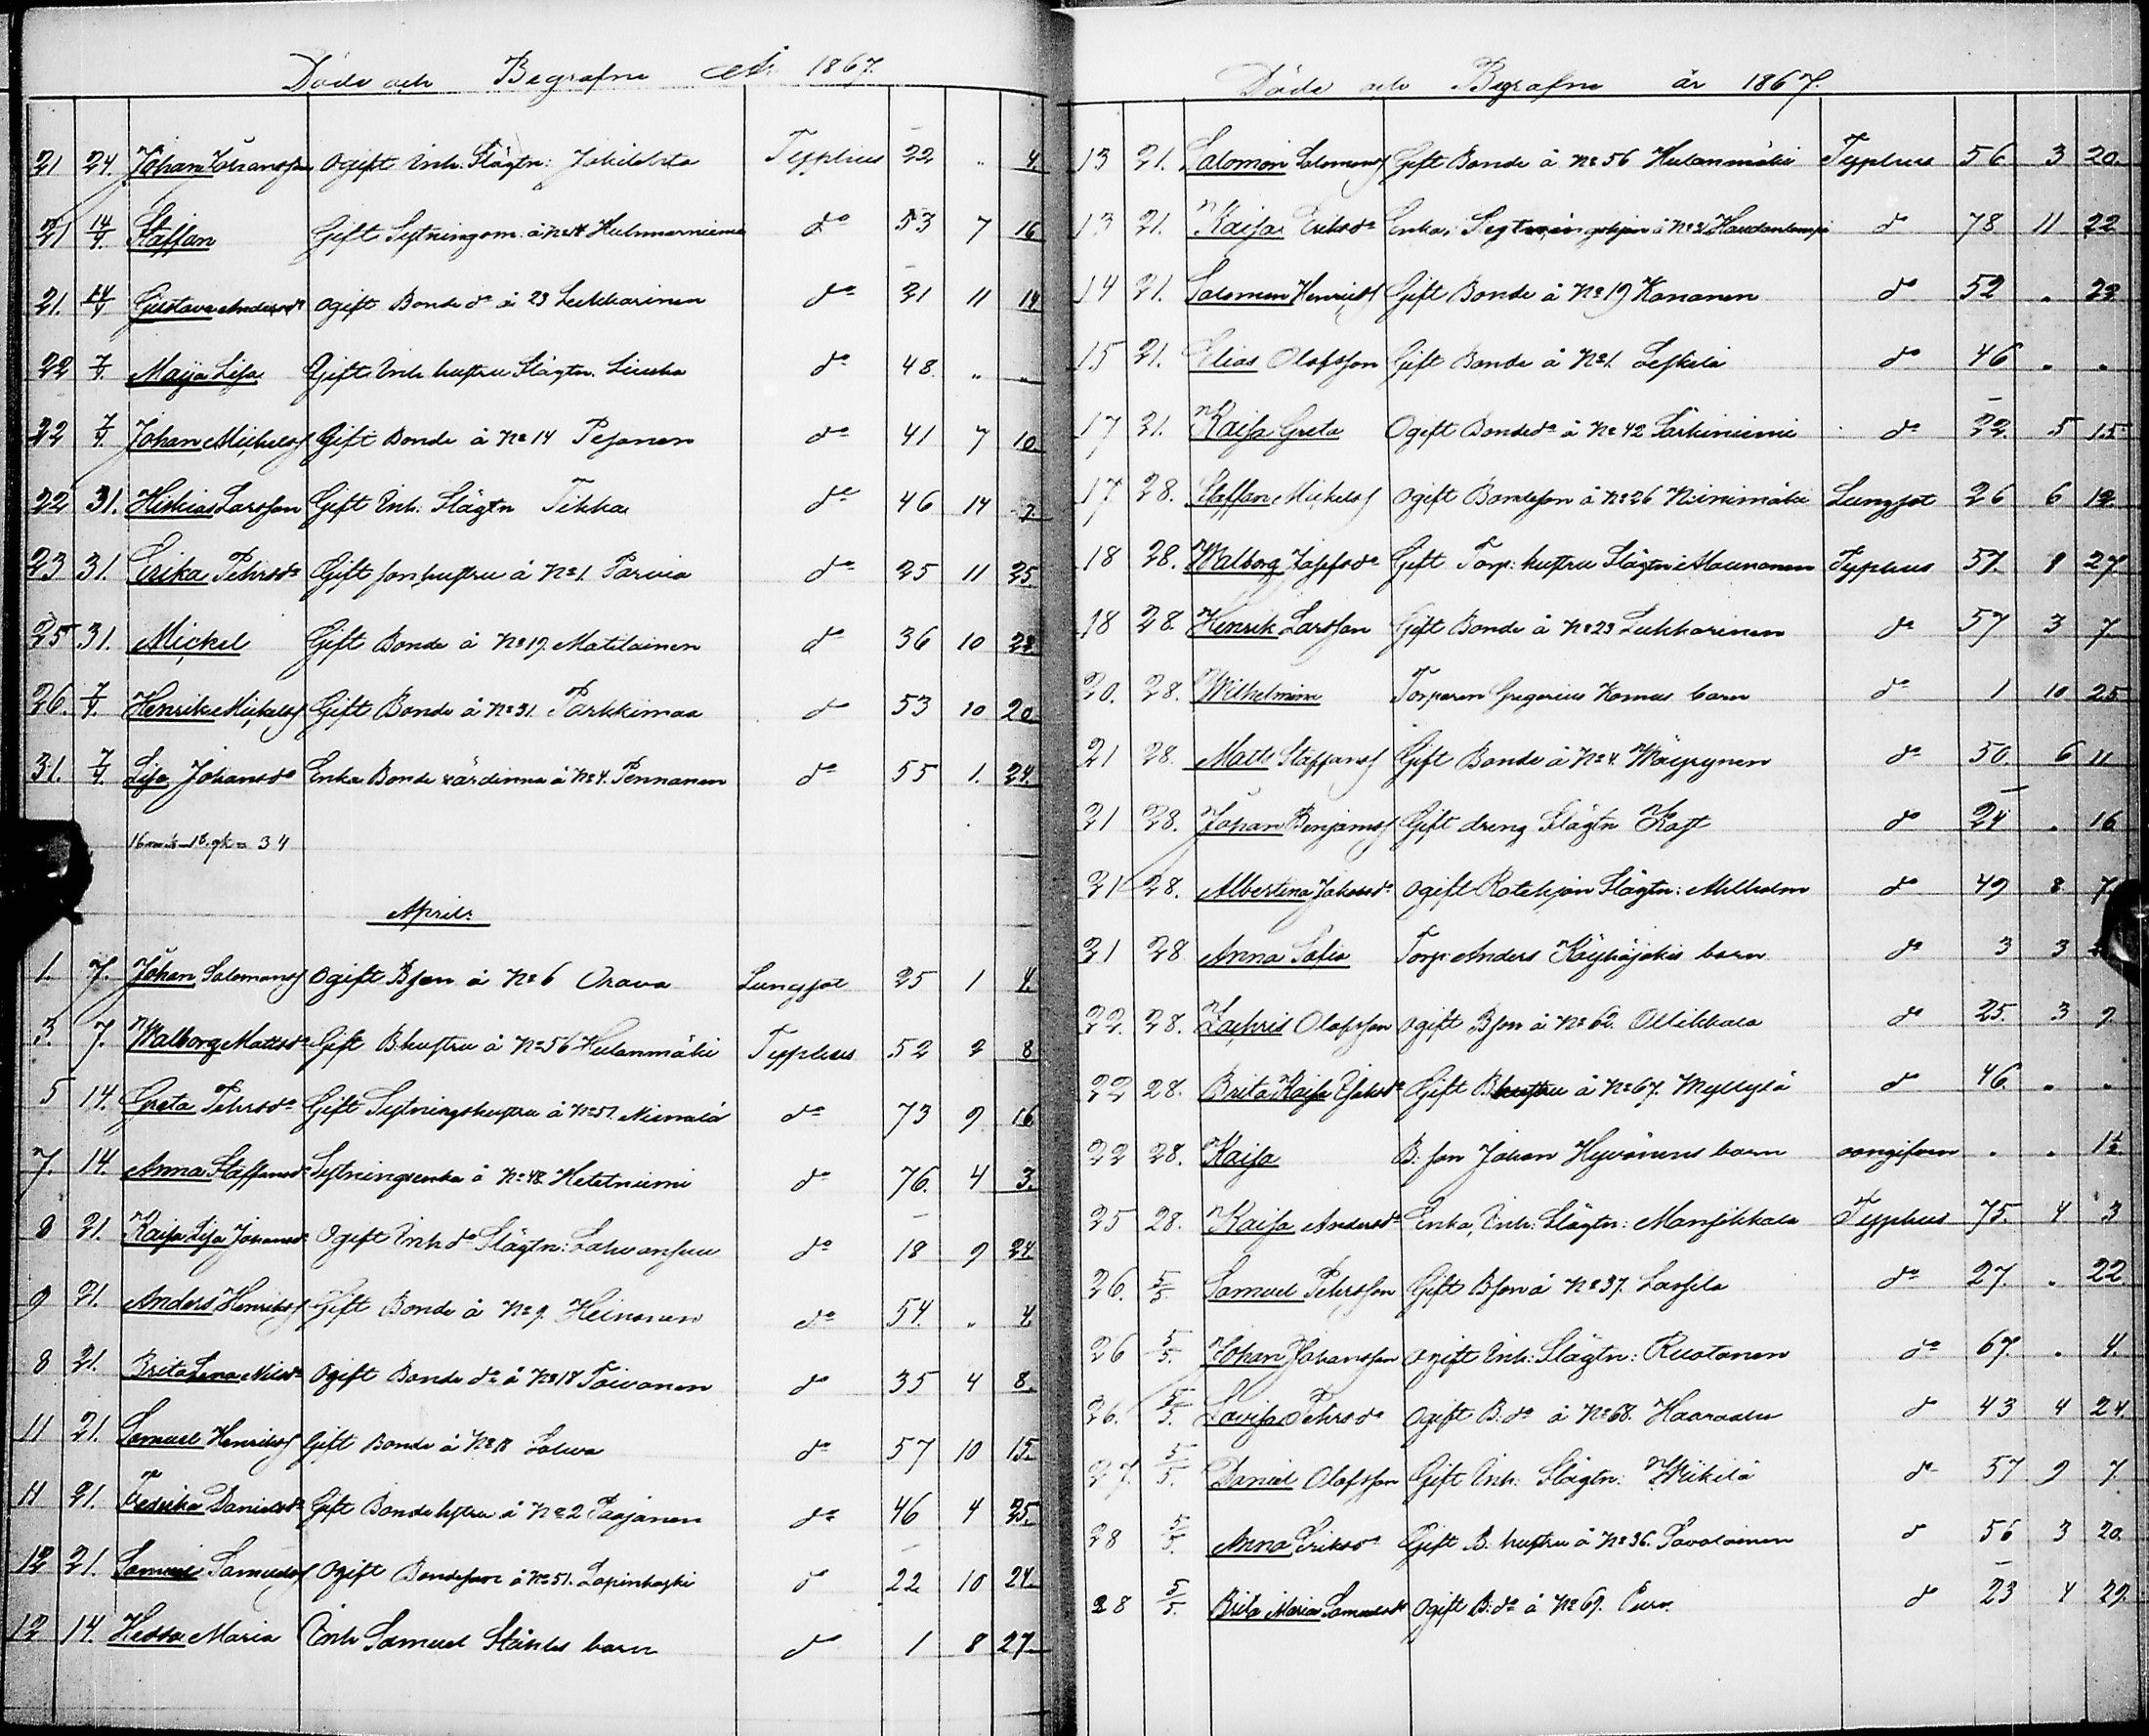 Döde och Begrafne År 1867.
21 24. Johan Johansson Ogift Inh: Slägtn: Typhus 22 " 4.
21 14/4. Staffan Gift Sytningsm: å No Typhus do 53 7 16
21. 14/4 Gustava Andersdr Ogift Bonde dr å 23 Lukkarinen do 21 11 14
22 7/4. Maija Lisa Gift Inh. hustru Slägtn. do 48. " "
22 7/4. Johan Mickels Gift Bonde å No 14 Pesonen do 41 7 10.
22 31. Hiskias Larsson Gift Inh: Slägtn Tikka do 46 14 7.
23 31. Erika Pehrsdr Gift sonhustru å No 1. Parvia do 25 11 25
25 31. Mickel Gift Bonde å No 19. Matilainen do 36 10 28
26. 7/4. Henrik Mickels Gift Bonde å No 31. Parkkimaa do 53 10 20
31. 7/4. Lisa Johansdr Enka Bonde värdinna å No 4. Pennanen do 55 1. 24.
16 mk 18. qk = 34
April:
1. 7. Johan Salomons Ogift Bson å No 6 Orava Lungsot 25 1 4.
3. 7. Walborg Mattsdr Gift B.hustru å No 56 Hulanmäki Typhus 52 2 8
5 14. Greta Pehrsdr Gift Sytningshustru å No 51. Niemelä do 73 9 16
7. 14. Anna Staffansdr Sytningsenka å No 48. Hetetniemi do 76. 4 3.
8 21. Kaisa Lisa Johansdr Ogift Inh dr Slägtn: do 18 9 24
9 21. Anders Henriks Gift Bonde å No 9. Heinonen do 54. " 4.
8 21. Brita Lena Nilsdr Ogift Bonde dr å No 18 Toivanen do 35 4 8.
11 21. Samuel Henriks Gift Bonde å No 18 do 57 10 15.
11 21. Fredrika Danielsdr Gift Bondehustru å No 2 Paajanen do 46 4 25.
12 21. Samuel Samuels Ogift Bondeson å No 51. do 22 10 24.
12 14. Hedda Maria Inh Samuel Ståhls barn do 1 8 27
Döde och Begrafne år 1867.
13 21. Salomon Salomons Gift Bonde å No 56 Hulanmäki Typhus 56 3 20.
13 21. Kaisa Eriksdr Enka, Sytningshjon å No Haudanlampi do 78 11 22
14 21. Salomon Henriks Gift Bonde å No 19 Kananen do 52 " 22
15 21. Elias Olofsson Gift Bonde å No 1. Leskelä do 46 " "
17 21. Kaisa Greta Ogift Bonde dr å No 42 Särkiniemi do 22. 5 15
17 28. Staffan Mickels Ogift Bondeson å No 26 Niinimäki Lungsot 26 6 12.
18 28. Walborg Josefsdr Gift Torp: hustru Slägtn: Maunonen Typhus 57. 8 27
18 28. Henrik Larsson Gift Bonde å No 23 Lukkarinen do 57 3 7.
20. 28. Wilhelmina Torparen Gregorius Komus barn do 1 10 25
21 28. Matts Staffans Gift Bonde å No 4. Wäyrynen do 50. 6 11
21 28. Johan Benjams Gift dreng Slägtn Kast do 24 " 16
21 28. Albertina Jakobsdr Ogift Rotehjon Slägtn: Ahlholm do 49 8 7.
21 28 Anna Sofia Torp: Anders barn do 3 3
22. 28. Zachris Olofsson Ogift Bson å No 62. Ollikkala do 25. 3 9
22 28. Brita Kaisa Gift Bhustru å No 67. Myllylä do 46. " "
22 28. Kaisa B: son Johan Hyvönens barn oangifven " " 1½
25 28. Kaisa Andersdr Enka, Inh: Slägtn: Mansikkala Typhus 75. 4 3
26. 5/5 Samuel Pehrsson Gift Bson å No 37. Lassila do 27. " 22
26 5/5. Johan Johansson Ogift Inh: Slägtn: Ruotanen do 67. " 4.
26. 5/5. Lovisa Pehrsdr Ogift B: dr å No 68. do 43 4 24.
27. 5/5. Daniel Olofsson Gift Inh: Slägtn: Wiikilä do 57 9 7.
28 5/5. Anna Eriksdr Gift B. hustru å No 36. Savolainen do 56 3 20.
28 5/5. Brita Maria Samuelsdr Ogift B: dr å No 69. Puro. do 23 4 29.